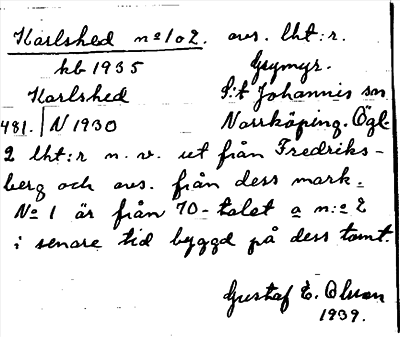 Karlshed nº 1 o 2. avs. lht:r.
kb 1935 Gsymyr.
Karlshed S:t Johannis sn
481. N 1930 Norrköping. Ögl.
2 lht:r n. v. ut från Fredriks-
berg och avs. från dess mark.
Nº 1 är från 70-talet o n:o 2
i senare tid byggd på dess tomt.
Gustaf E. Olsson
1939.